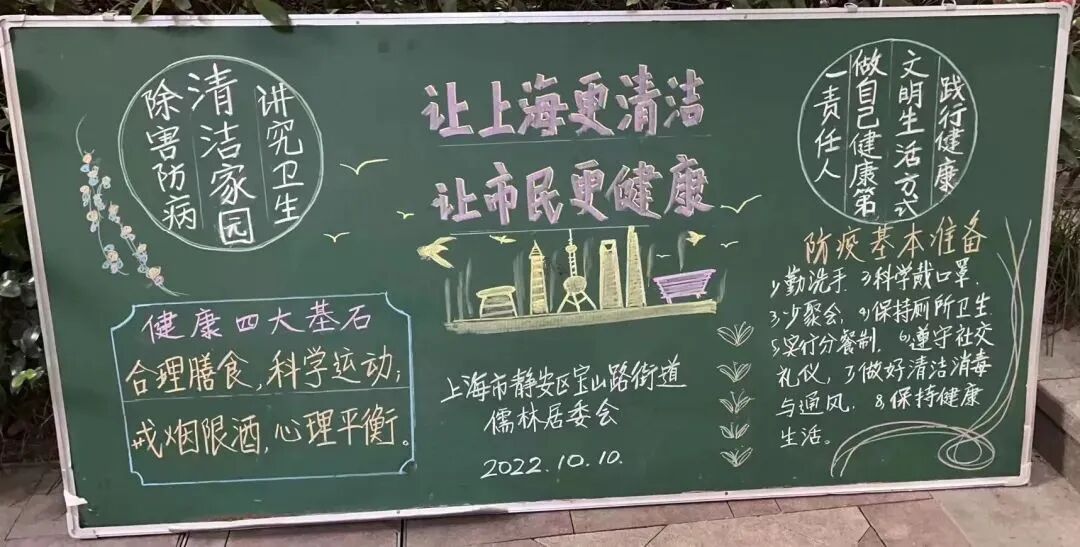 讲究卫生
清洁家园
除害防病
健康四大基石
合理膳食,科学运动;
戒烟限酒,心理平衡。
让上海更清洁
让市民更健康
上海市静安区宝山路街道
儒林居委会
2022.10.10.
践行健康
文明生活方式
做自己健康第
一责任人
防疫基本准备
1,勤洗手. 2,科学戴口罩.
3,少聚会. 4,保持厕所卫生
5,实行分餐制. 6,遵守社交
礼仪, 7,做好清洁消毒
与通风. 8,保持健康
生活。